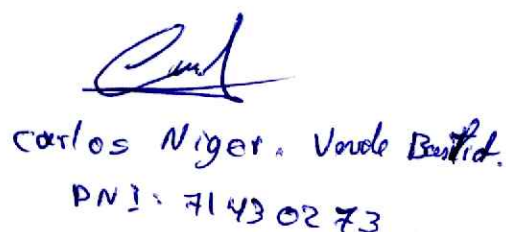 Carlos Niger. Verde
DNI: 71430273